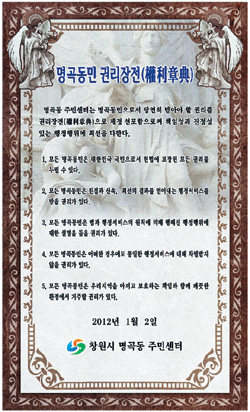 명곡동민 권리장전(權利章典)
명곡동 주민센터는 명곡동민으로서 당연히 받아야 할 권리를
권리장전(權利章典)으로 제정 선포함으로써 책임성과 진정성
있는 행정행위에 최선을 다한다.
1. 모든 명곡동민은 대한민국 국민으로서 헌법에 보장된 모든 권리를
누릴 수 있다.
2. 모든 명곡동민은 친절과 신속, 최선의 결과를 얻어내는 행정서비스를
받을 권리가 있다.
3. 모든 명곡동민은 법과 행정서비스의 원칙에 의해 행해진 행정행위에
대한 설명을 들을 권리가 있다.
4. 모든 명곡동민은 어떠한 경우에도 동일한 행정서비스에 대해 차별받지
않을 권리가 있다.
5. 모든 명곡동민은 우리지역을 아끼고 보호하는 책임과 함께 깨끗한
환경에서 거주할 권리가 있다.
2012년 1월 2일
창원시 명곡동 주민센터